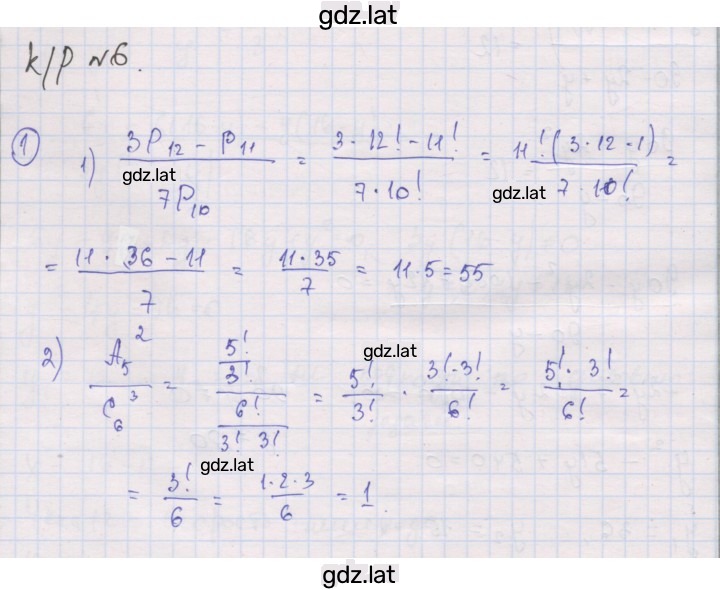 gdz.lat
к/р №6.
1 1) (3P₁₂ - P₁₁)/(7P₁₀) = (3·12! - 11!)/(7·10!) = (11!(3·12-1))/(7·10!) =
gdz.lat
gdz.lat
= (11·36 - 11)/7 = (11·35)/7 = 11·5 = 55
2) A₅²/C₆³ = (5!/3!)/(6!/(3! 3!)) = 5!/3! · (3!·3!)/6! = (5!·3!)/6! =
gdz.lat
gdz.lat
= 3!/6 = (1·2·3)/6 = 1.
gdz.lat